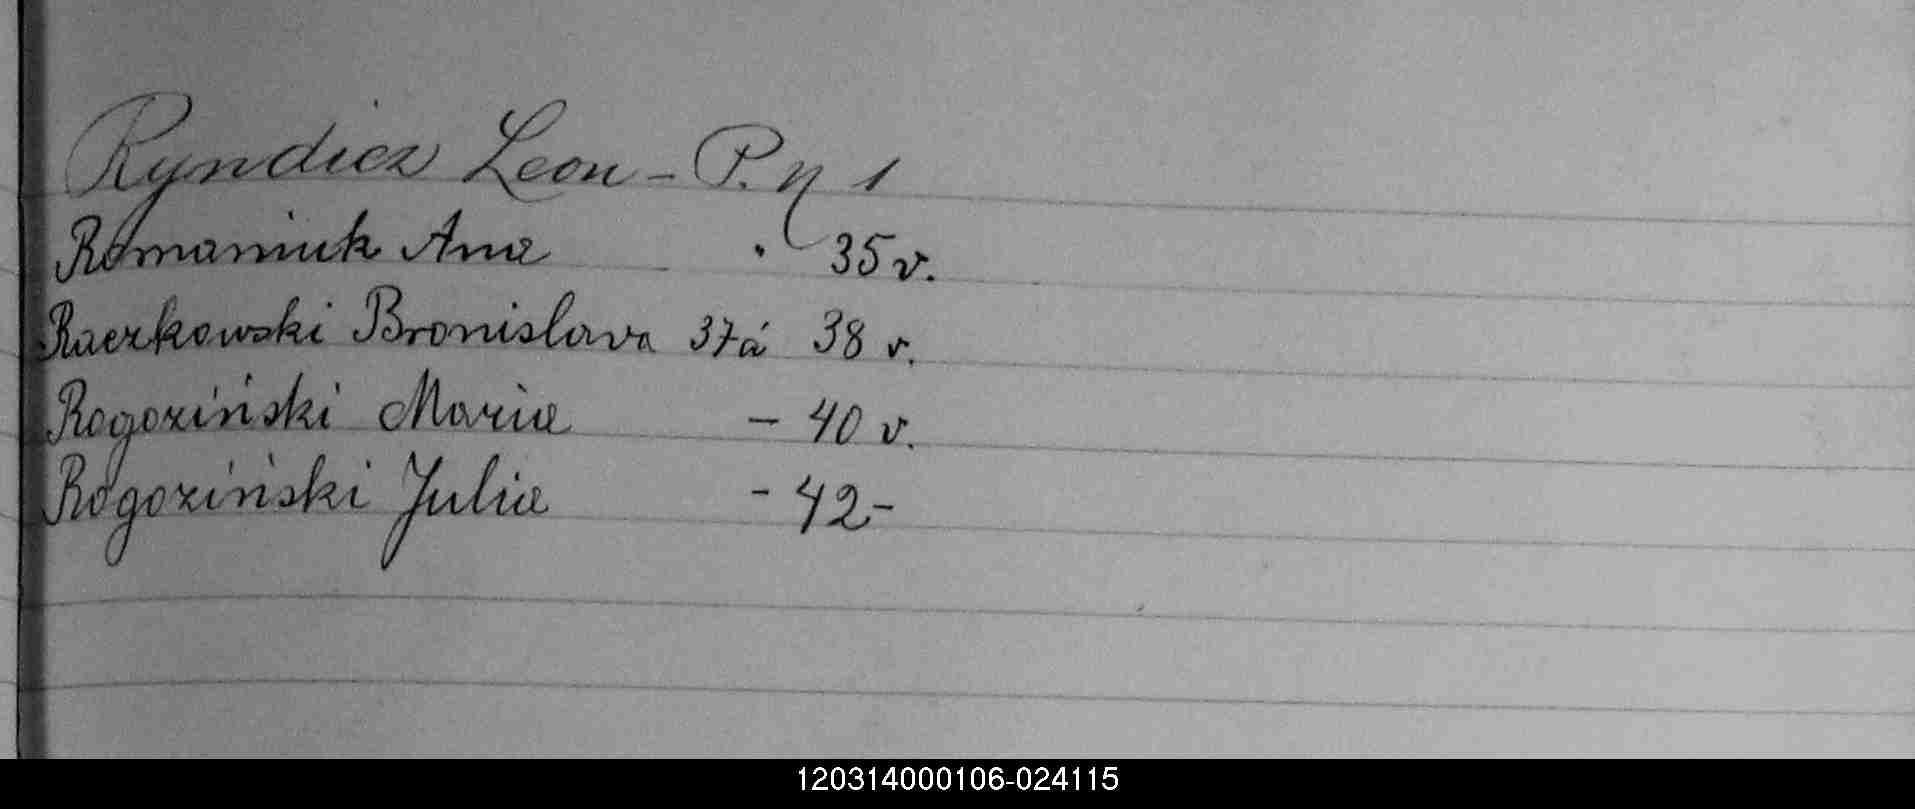 Ryndicz Leon - P. n 1
Romaniuk Ana . 35 v.
Raczkowski Bronislava 37á 38 v.
Rogoziński Maria - 40 v.
Rogoziński Julia - 42 -
120314000106-024115